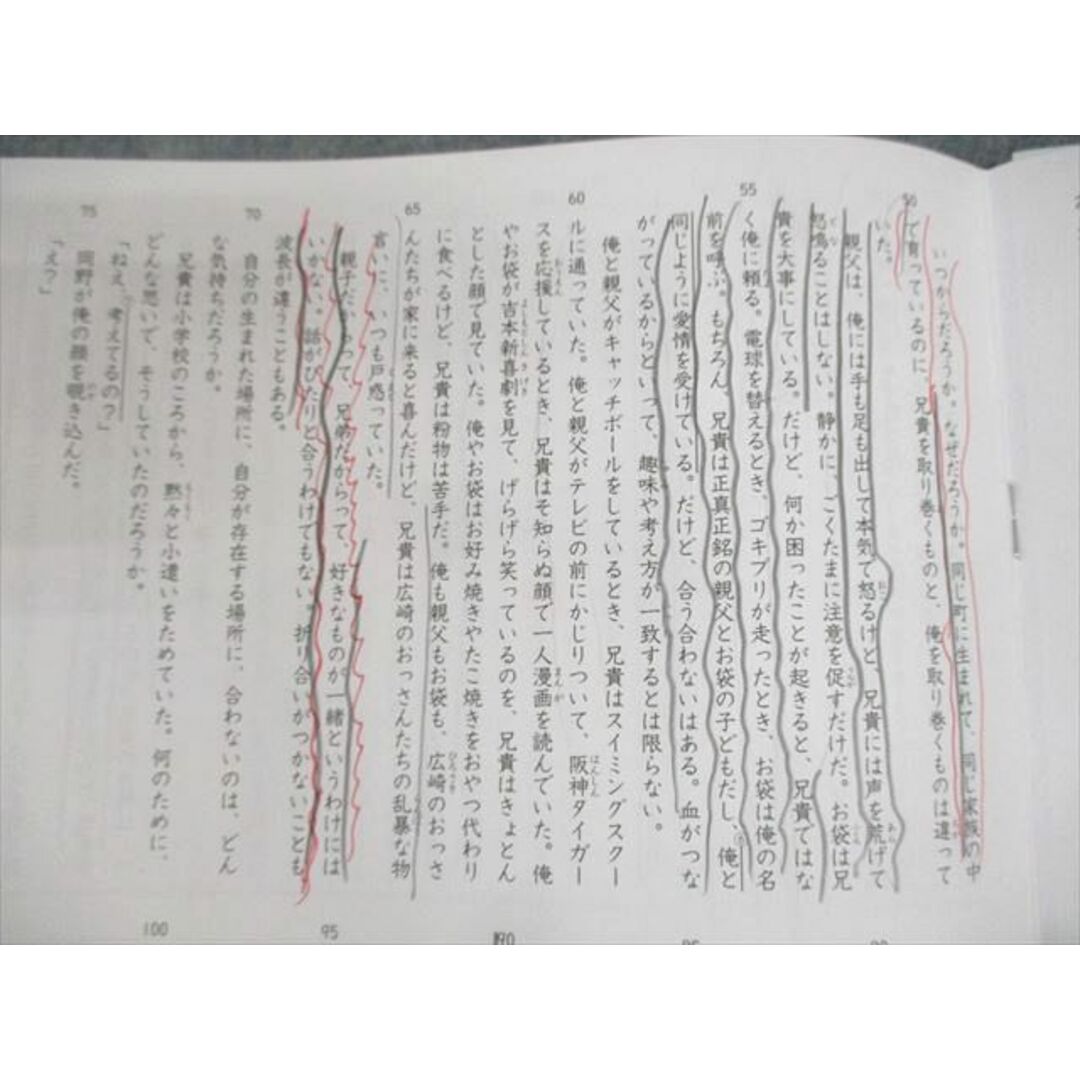 いつからだろうか。なぜだろうか。同じ町に生まれて、同じ家族の中
50
で育っているのに、兄貴を取り巻くものと、俺を取り巻くものは違って
いた。
親父は、俺には手も足も出して本気で怒るけど、兄貴には声を荒げて
怒鳴ることはしない。静かに、ごくたまに注意を促すだけだ。お袋は兄
貴を大事にしている。だけど、何か困ったことが起きると、兄貴ではな
55
く俺に頼る。電球を替えるとき、ゴキブリが走ったとき、お袋は俺の名
前を呼ぶ。もちろん、兄貴は正真正銘の親父とお袋の子どもだし、俺と
同じように愛情を受けている。だけど、合う合わないはある。血がつな
がっているからといって、趣味や考え方が一致するとは限らない。
俺と親父がキャッチボールをしているとき、兄貴はスイミングスクー
60
ルに通っていた。俺と親父がテレビの前にかじりついて、阪神タイガー
スを応援しているとき、兄貴はそ知らぬ顔で一人漫画を読んでいた。俺
やお袋が吉本新喜劇を見て、げらげら笑っているのを、兄貴はきょとん
とした顔で見ていた。俺やお袋はお好み焼きやたこ焼きをおやつ代わり
に食べるけど、兄貴は粉物は苦手だ。俺も親父もお袋も、広崎のおっさ
65
んたちが家に来ると喜んだけど、兄貴は広崎のおっさんたちの乱暴な物
言いに、いつも戸惑っていた。
親子だからって、兄弟だからって、好きなものが一緒というわけには
いかない。話がぴたりと合うわけでもない。折り合いがつかないことも
波長が違うこともある。
70
自分の生まれた場所に、自分が存在する場所に、合わないのは、どん
な気持ちだろうか。
兄貴は小学校のころから、黙々と小遣いをためていた。何のために、
どんな思いで、そうしていたのだろうか。
「ねえ、考えてるの?」
75
岡野が俺の顔を覗き込んだ。
「え?」
90
95
100